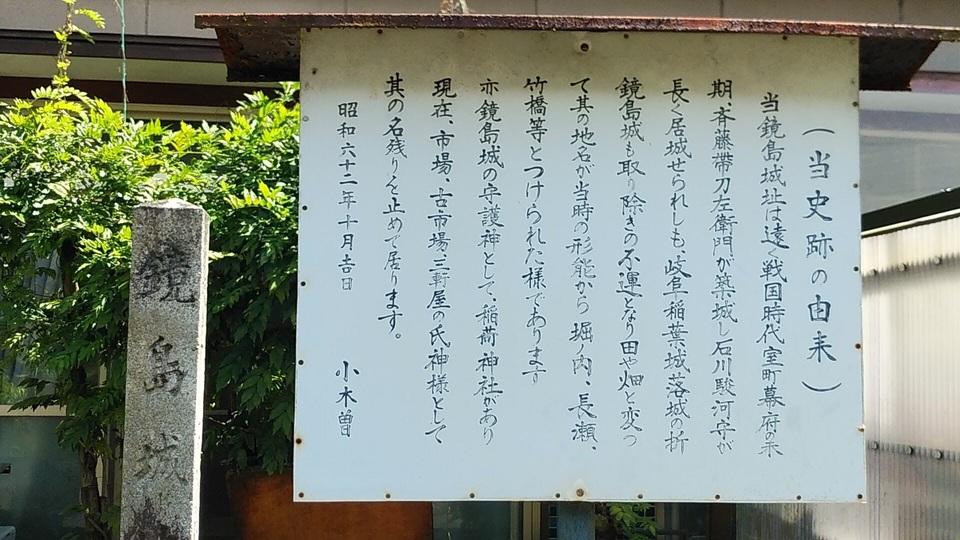 (当史跡の由来)
当鏡島城址は遠く戦国時代室町幕府の末
期、斉藤帯刀左衛門が築城し石川駿河守が
長く居城せられしも、岐阜稲葉城落城の折
鏡島城も取り除きの不運となり田や畑と変っ
て其の地名が当時の形態から堀、内、長瀬、
竹橋等とつけられた様であります
亦鏡島城の守護神として、稲荷神社があり
現在、市場、古市場、三軒屋の氏神様として
其の名残りを止めて居ります。
昭和六十二年十月吉日 小木曽
鏡島城